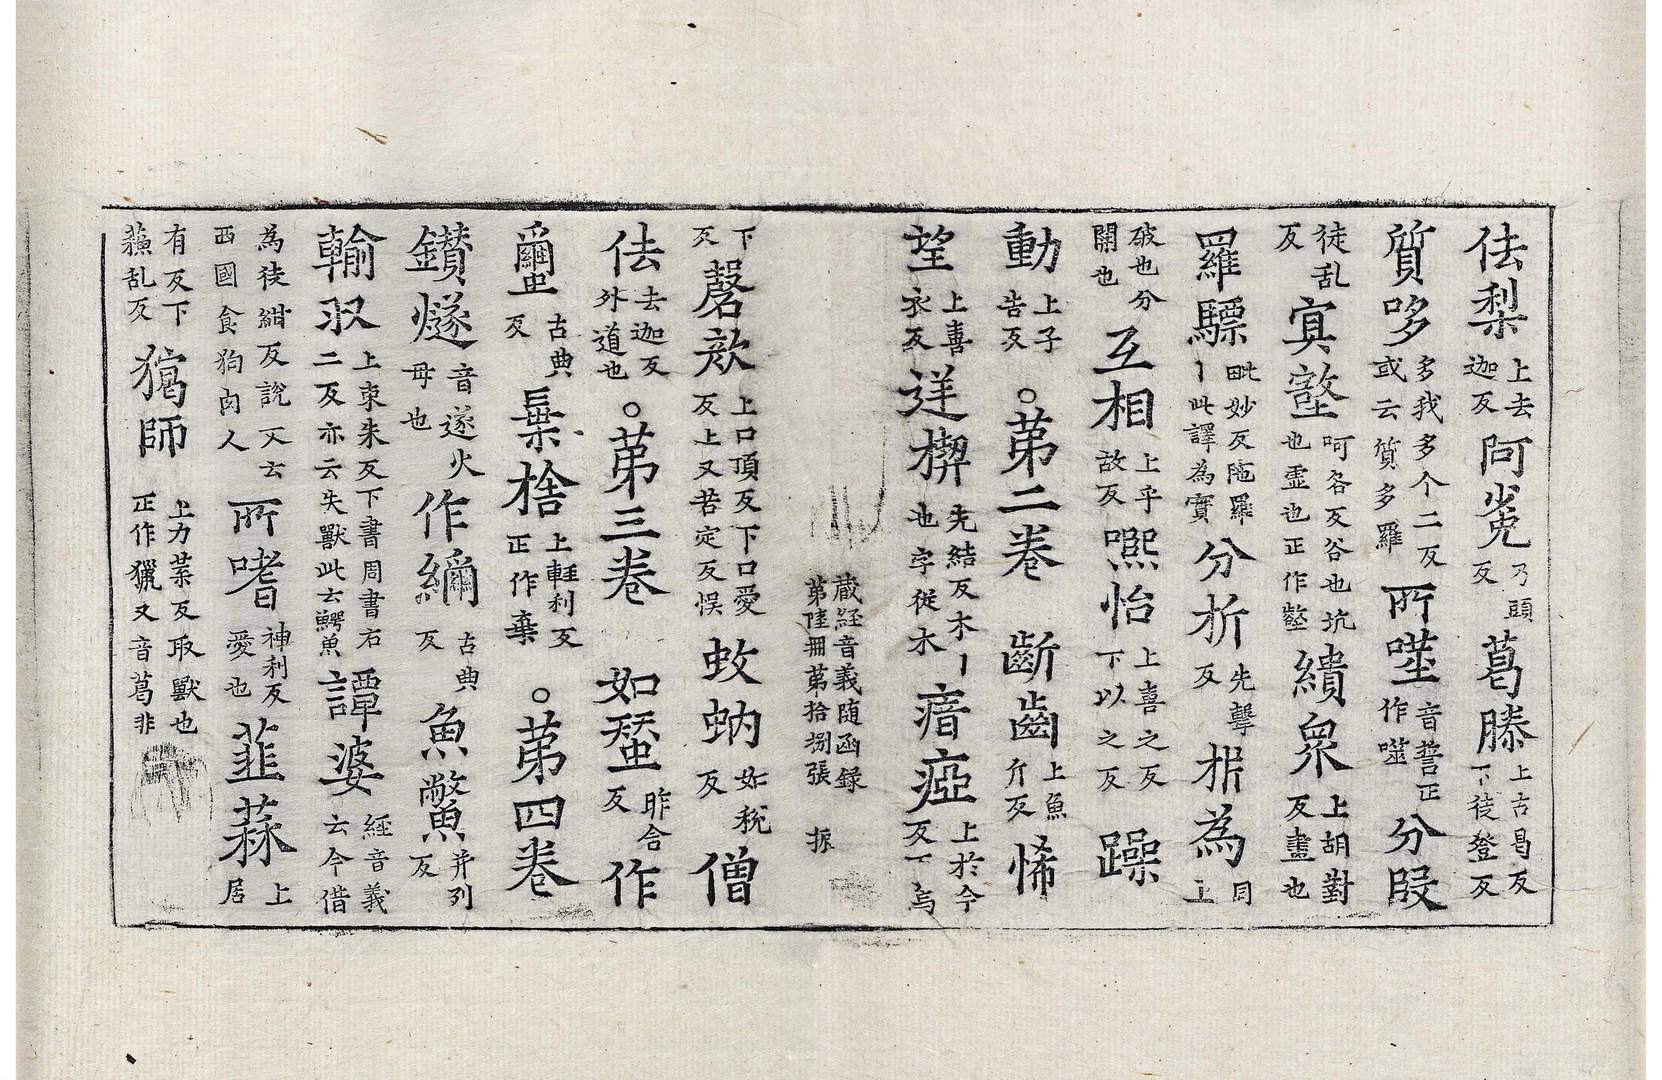 佉梨上去迦反阿㲋乃頭反葛㯕上古曷反下徒登反
質哆多我多个二反或云質多羅所噬音誓正作噬分段
徒乱反㝠壑呵各反谷也坑也虚也正作壑繢衆上胡對反畫也
羅驃毗妙反陁羅丨此譯為實分析先擊反㭊為同上
破也分開也互相上乎故反㷩怡上喜之反下以之反躁
動上子告反○苐二卷齘齒上魚介反悕
望上喜衣反送楔先結反木丨也字從木瘖瘂上於今反下烏
藏経音義随函録苐陸冊苐拾捌張振
下反罄欬上口頂反下口愛反上又苦定反悮蚊蚋如稅反僧
佉去迦反外道也○苐三卷如蝅昨含反作
䘉古典反棄捨上輕利反正作棄○苐四卷
鑚燧音遂火母也作䌤古典反魚鱉并列反
輸収上束朱反下書周書右二反亦云失獸此云鰐魚譚婆経音義云今借
為徒紺反說文云西國食狗肉人所嗜神利反愛也韮蒜上居
有反下蘓乱反獦師上力葉反取獸也正作獵又音葛非